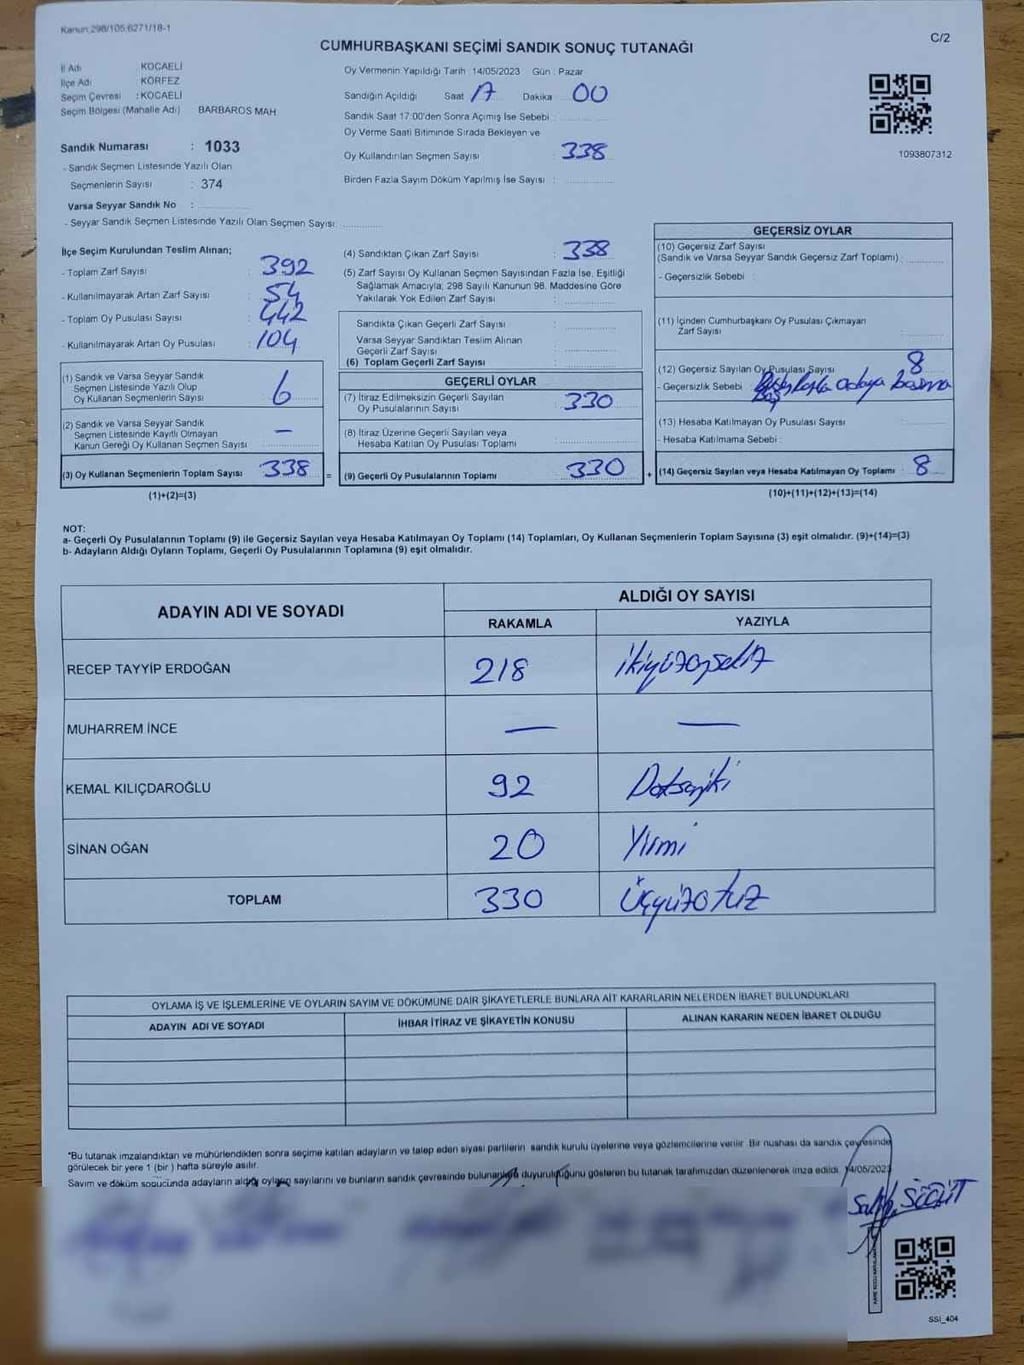 Kanun:298/105,6271/18-1
C/2
CUMHURBAŞKANI SEÇİMİ SANDIK SONUÇ TUTANAĞI
İl Adı : KOCAELİ
İlçe Adı : KÖRFEZ
Seçim Çevresi : KOCAELİ
Seçim Bölgesi (Mahalle Adı) BARBAROS MAH
Sandık Numarası : 1033
- Sandık Seçmen Listesinde Yazılı Olan
Seçmenlerin Sayısı : 374
Varsa Seyyar Sandık No :
- Seyyar Sandık Seçmen Listesinde Yazılı Olan Seçmen Sayısı:
Oy Vermenin Yapıldığı Tarih : 14/05/2023 Gün : Pazar
Sandığın Açıldığı Saat 17 Dakika 00
Sandık Saat 17:00'den Sonra Açımış İse Sebebi :
Oy Verme Saati Bitiminde Sırada Bekleyen ve
Oy Kullandırılan Seçmen Sayısı : 338
Birden Fazla Sayım Döküm Yapılmış İse Sayısı :
1093807312
İlçe Seçim Kurulundan Teslim Alınan;
- Toplam Zarf Sayısı : 392
- Kullanılmayarak Artan Zarf Sayısı : 54
- Toplam Oy Pusulası Sayısı : 442
- Kullanılmayarak Artan Oy Pusulası : 104
(1) Sandık ve Varsa Seyyar Sandık
Seçmen Listesinde Yazılı Olup
Oy Kullanan Seçmenlerin Sayısı : 6
(2) Sandık ve Varsa Seyyar Sandık
Seçmen Listesinde Kayıtlı Olmayan
Kanun Gereği Oy Kullanan Seçmen Sayısı : —
(3) Oy Kullanan Seçmenlerin Toplam Sayısı : 338 =
(1)+(2)=(3)
(4) Sandıktan Çıkan Zarf Sayısı : 338
(5) Zarf Sayısı Oy Kullanan Seçmen Sayısından Fazla İse, Eşitliği
Sağlamak Amacıyla; 298 Sayılı Kanunun 98. Maddesine Göre
Yakılarak Yok Edilen Zarf Sayısı :
Sandıkta Çıkan Geçerli Zarf Sayısı :
Varsa Seyyar Sandıktan Teslim Alınan
Geçerli Zarf Sayısı :
(6) Toplam Geçerli Zarf Sayısı :
GEÇERLİ OYLAR
(7) İtiraz Edilmeksizin Geçerli Sayılan
Oy Pusulalarının Sayısı : 330
(8) İtiraz Üzerine Geçerli Sayılan veya
Hesaba Katılan Oy Pusulası Toplamı :
(9) Geçerli Oy Pusulalarının Toplamı : 330 +
GEÇERSİZ OYLAR
(10) Geçersiz Zarf Sayısı
(Sandık ve Varsa Seyyar Sandık Geçersiz Zarf Toplamı) :
- Geçersizlik Sebebi :
(11) İçinden Cumhurbaşkanı Oy Pusulası Çıkmayan
Zarf Sayısı :
(12) Geçersiz Sayılan Oy Pusulası Sayısı : 8
- Geçersizlik Sebebi : adaya basma
(13) Hesaba Katılmayan Oy Pusulası Sayısı :
- Hesaba Katılmama Sebebi :
(14) Geçersiz Sayılan veya Hesaba Katılmayan Oy Toplamı : 8
(10)+(11)+(12)+(13)=(14)
NOT:
a- Geçerli Oy Pusulalarının Toplamı (9) ile Geçersiz Sayılan veya Hesaba Katılmayan Oy Toplamı (14) Toplamları, Oy Kullanan Seçmenlerin Toplam Sayısına (3) eşit olmalıdır. (9)+(14)=(3)
b- Adayların Aldığı Oyların Toplamı, Geçerli Oy Pusulalarının Toplamına (9) eşit olmalıdır.
ADAYIN ADI VE SOYADI
ALDIĞI OY SAYISI
RAKAMLA YAZIYLA
RECEP TAYYİP ERDOĞAN 218 ikiyüzonsekiz
MUHARREM İNCE — —
KEMAL KILIÇDAROĞLU 92 Doksaniki
SİNAN OĞAN 20 Yirmi
TOPLAM 330 Üçyüzotuz
OYLAMA İŞ VE İŞLEMLERİNE VE OYLARIN SAYIM VE DÖKÜMÜNE DAİR ŞİKAYETLERLE BUNLARA AİT KARARLARIN NELERDEN İBARET BULUNDUKLARI
ADAYIN ADI VE SOYADI İHBAR İTİRAZ VE ŞİKAYETİN KONUSU ALINAN KARARIN NEDEN İBARET OLDUĞU
*Bu tutanak imzalandıktan ve mühürlendikten sonra seçime katılan adayların ve talep eden siyasi partilerin sandık kurulu üyelerine veya gözlemcilerine verilir. Bir nüshası da sandık çevresinde
görülecek bir yere 1 (bir) hafta süreyle asılır.
Sayım ve döküm sonucunda adayların aldığı oyların sayılarını ve bunların sandık çevresinde bulunanlara duyurulduğunu gösteren bu tutanak tarafımızdan düzenlenerek imza edildi. 14/05/2023
SÖĞÜT
SSI_404